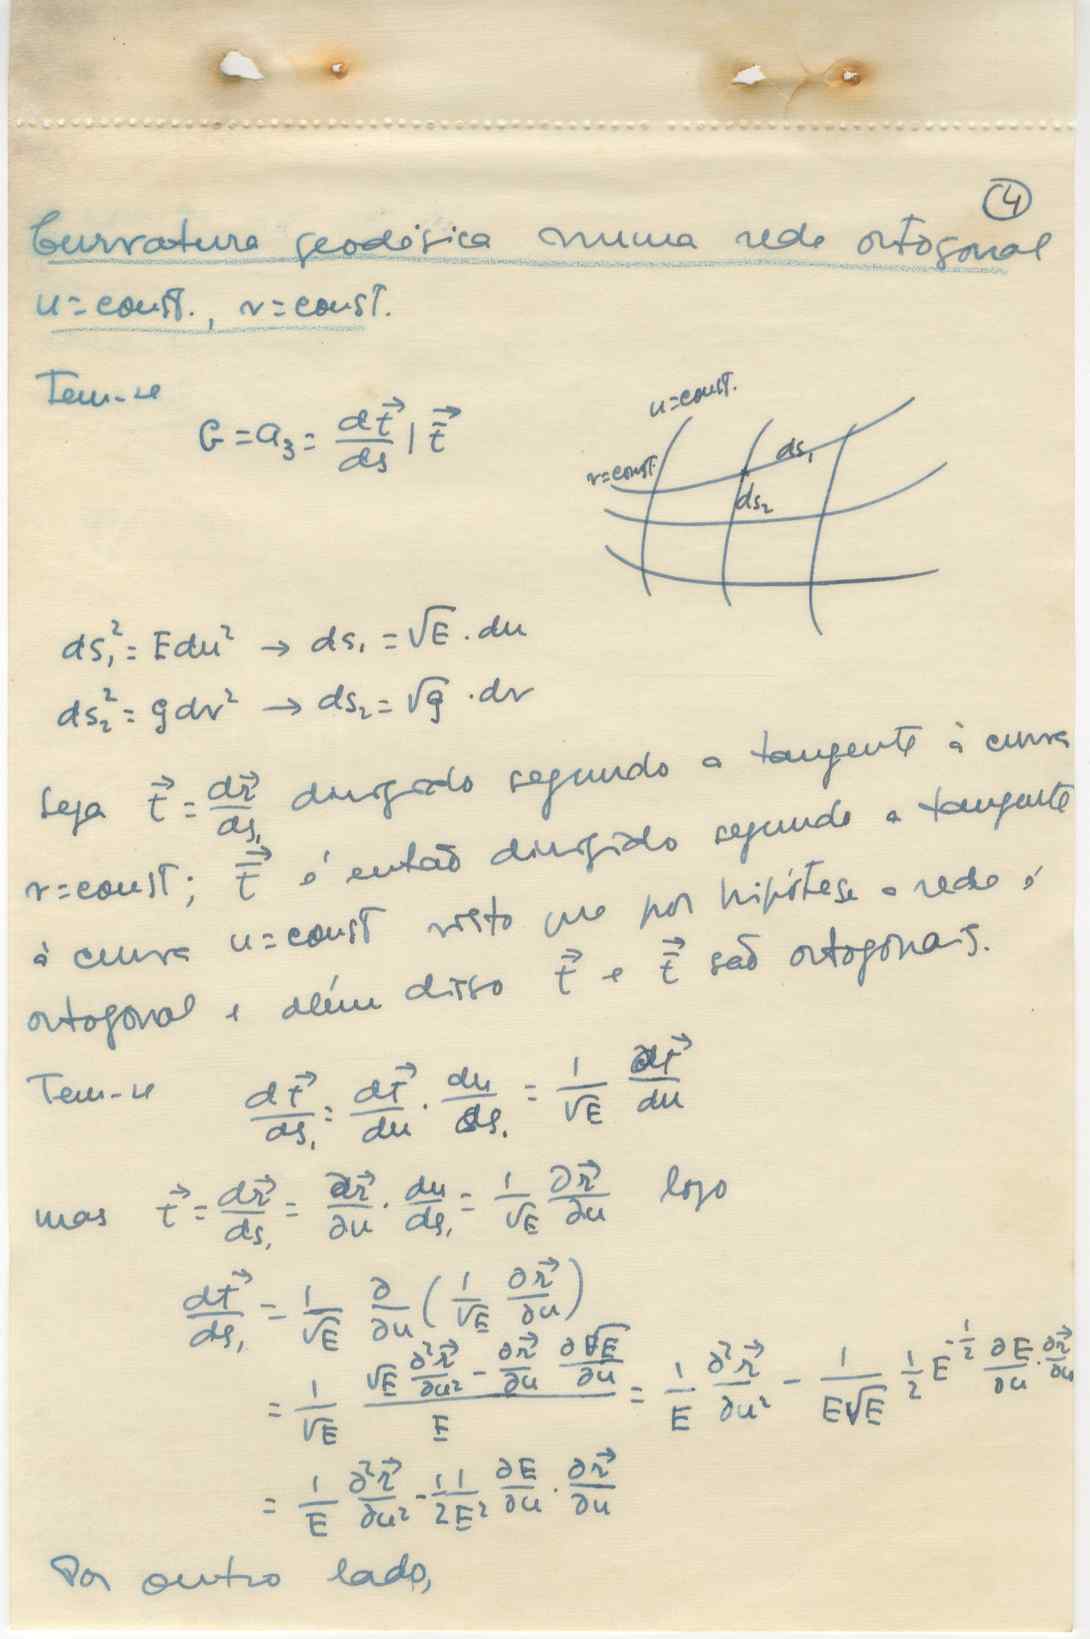 ④
Curvatura geodésica numa rede ortogonal
u=const., v=const.
Tem-se
G = a₃ = dt⃗/ds | t̿⃗
u=const.
v=const
ds₁
ds₂
ds₁² = Edu² → ds₁ = √E · du
ds₂² = gdv² → ds₂ = √g · dv
Seja t⃗ = dr⃗/ds₁ dirigido segundo a tangente à curva
v=const; t̿⃗ é então dirigido segundo a tangente
à curva u=const visto que por hipótese a rede é
ortogonal e além disso t⃗ e t̿⃗ são ortogonais.
Tem-se dt⃗/ds₁ = dt⃗/du · du/ds₁ = 1/√E ∂t⃗/du
mas t⃗ = dr⃗/ds₁ = ∂r⃗/∂u · du/ds₁ = 1/√E ∂r⃗/∂u logo
dt⃗/ds₁ = 1/√E ∂/∂u (1/√E ∂r⃗/∂u)
= 1/√E (√E ∂²r⃗/∂u² - ∂r⃗/∂u ∂√E/∂u)/E = 1/E ∂²r⃗/∂u² - 1/E√E 1/2 E^-1/2 ∂E/∂u · ∂r⃗/∂u
= 1/E ∂²r⃗/∂u² - 1/2 1/E² ∂E/∂u · ∂r⃗/∂u
Por outro lado,